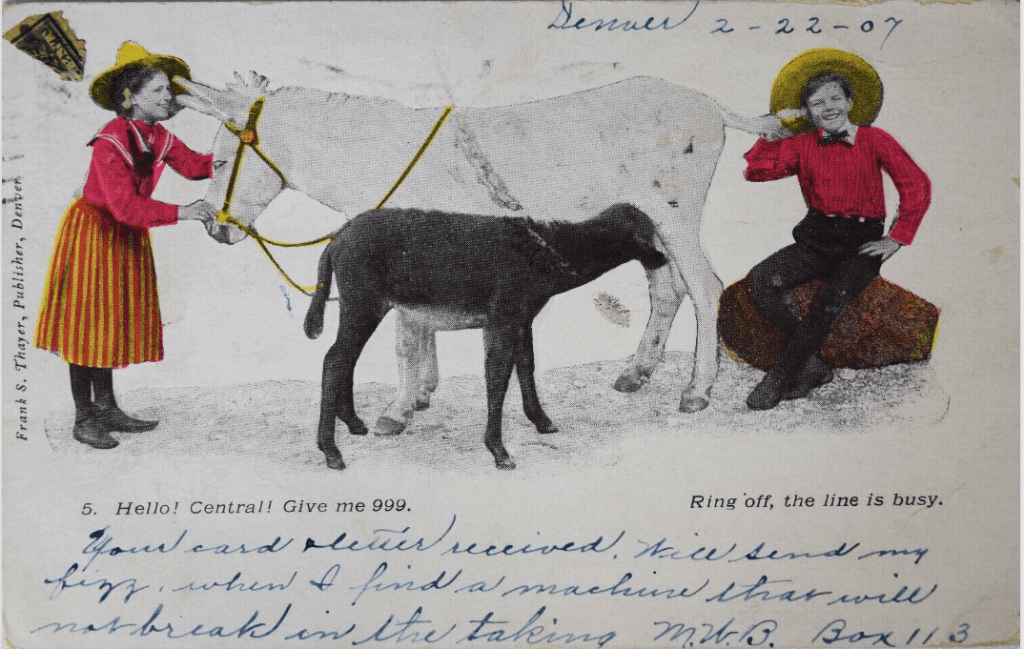 Denver 2-22-07
Frank S. Thayer, Publisher, Denver
5. Hello! Central! Give me 999.
Ring off, the line is busy.
Your card & letter received. Will send my
fizz. when I find a machine that will
not break in the taking M.W.B. Box 113